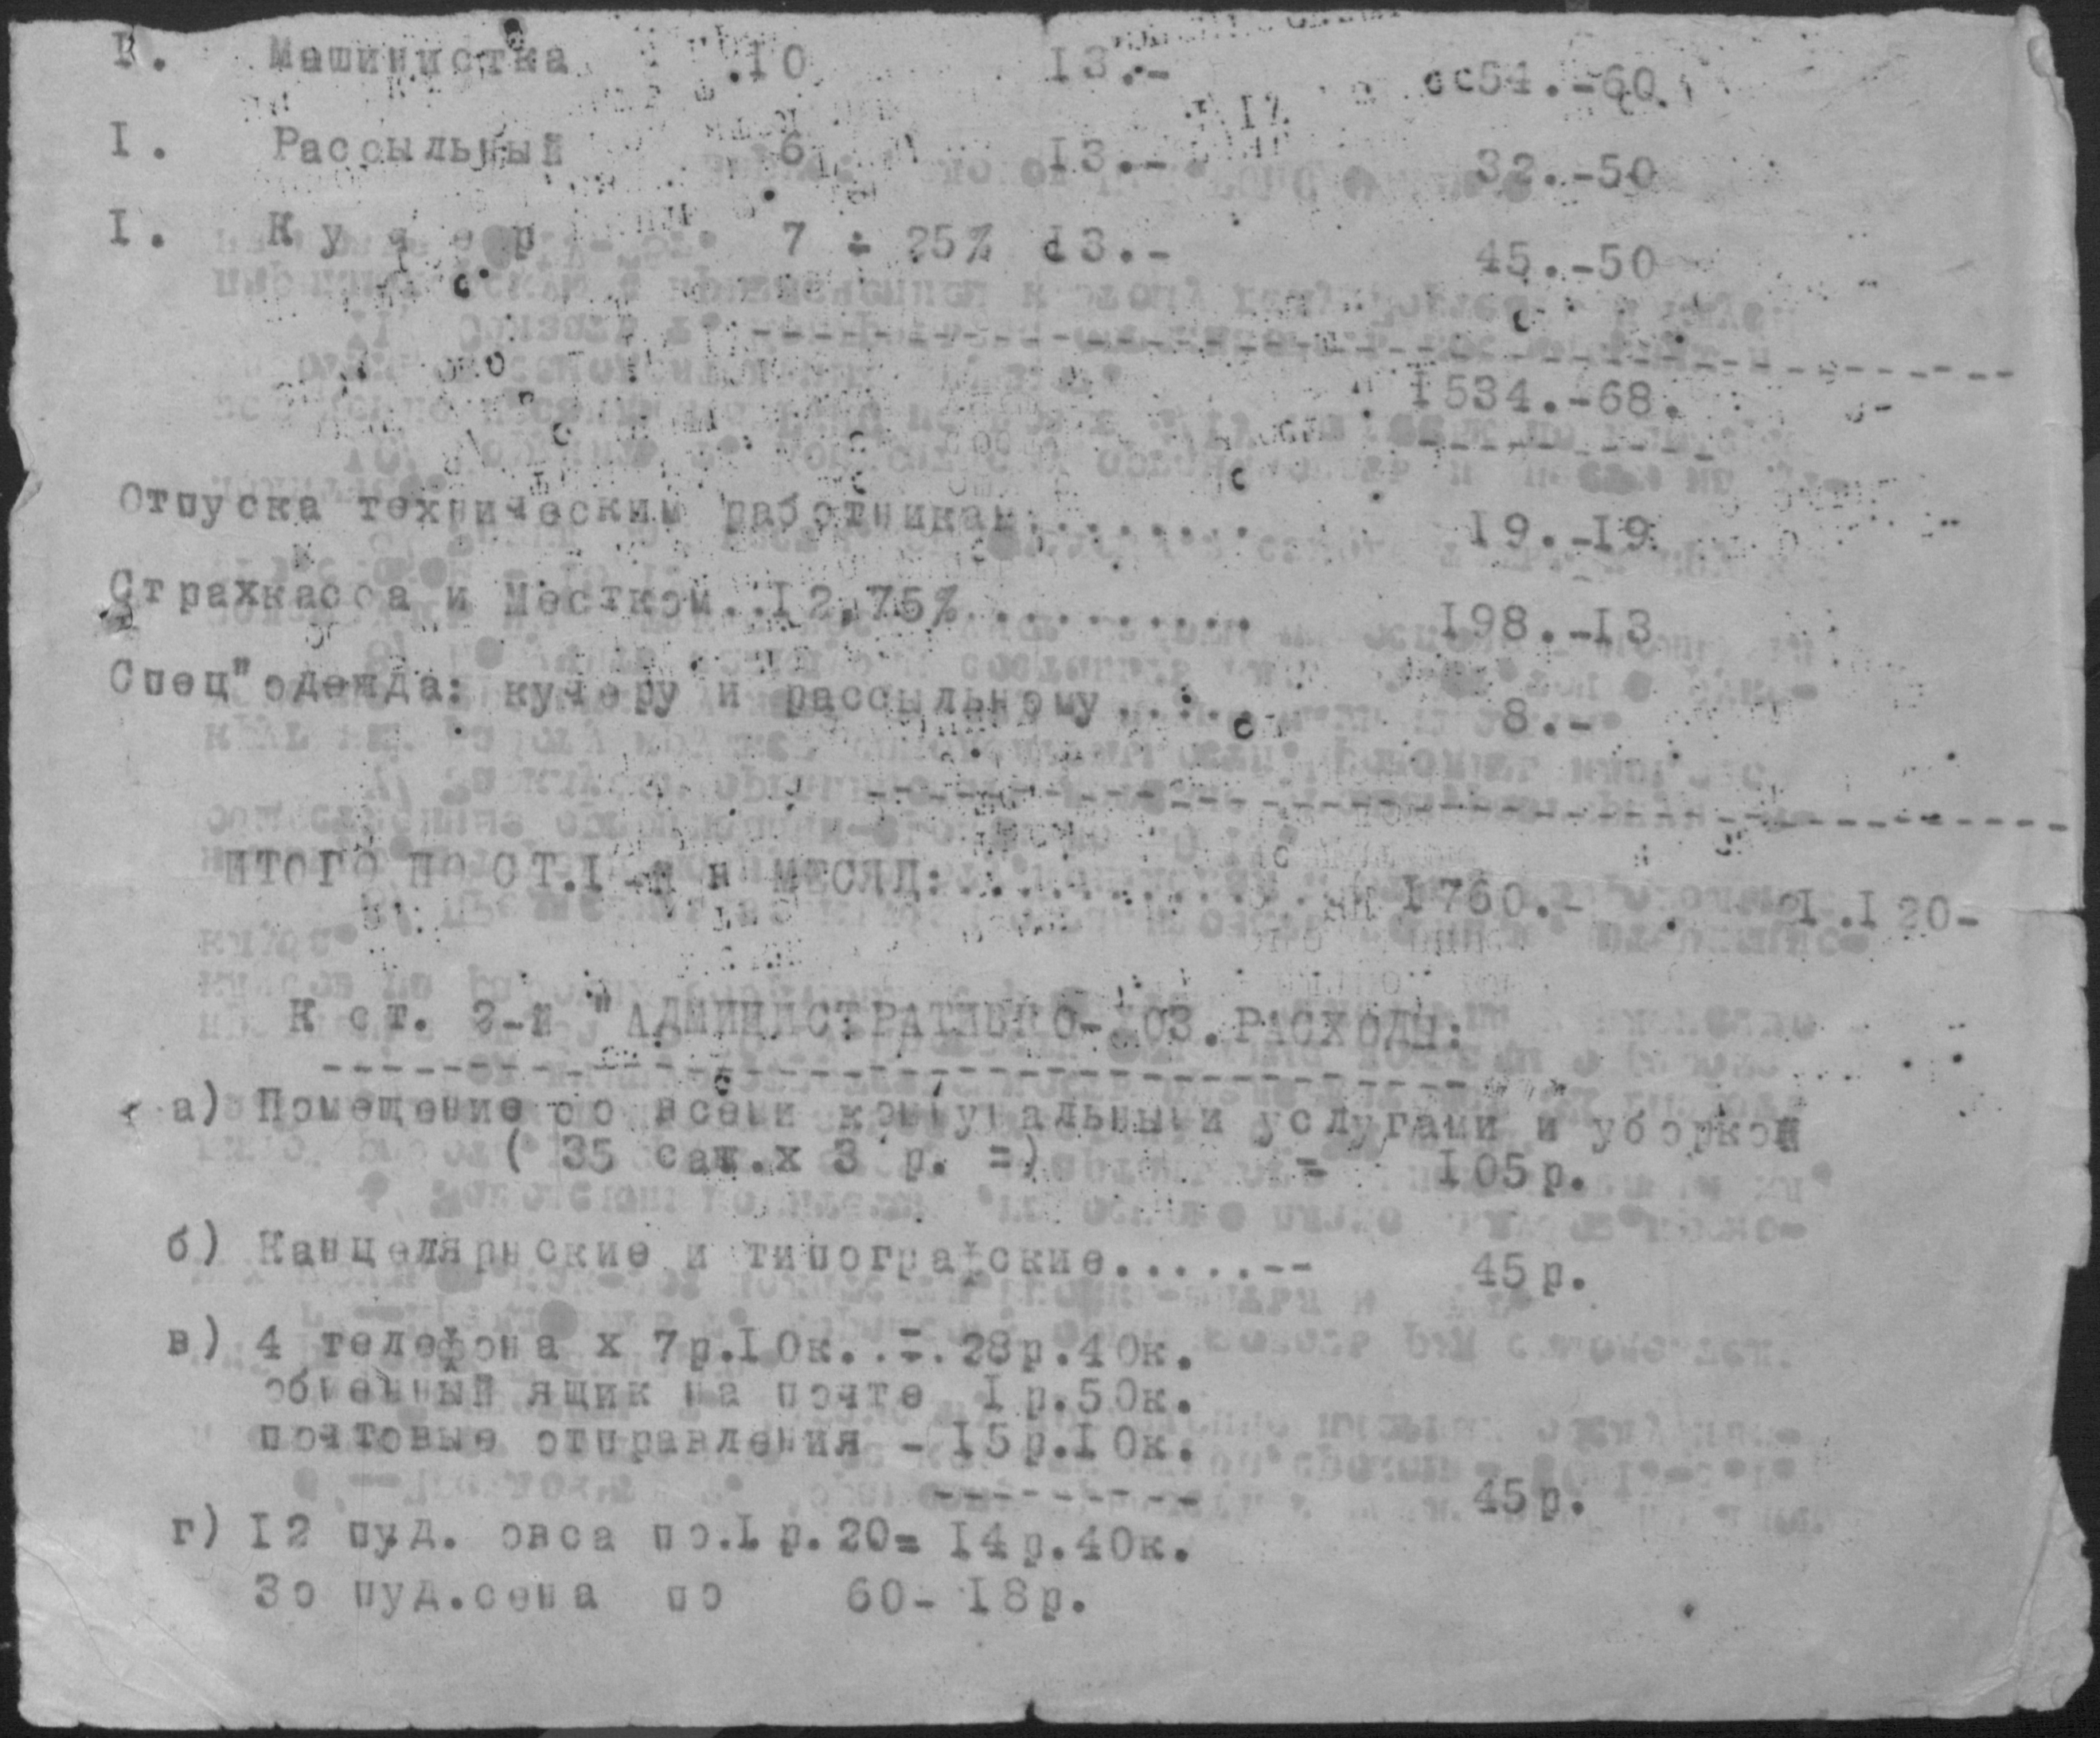 I. Машинистка .10 13.- 54.-60.
I. Рассыльный 6 13.- 32.-50
I. Кучер 7 ÷ 25% 13.- 45.-50
1534.-68.
Отпуска техническим работникам........ 19.-19
Страхкасса и Местком..12,75%.......... 198.-13
Спец"одежда: кучеру и рассыльному..... 8.-
ИТОГО ПО СТ.I-й в МЕСЯЦ:............. 1760.- 21.120-
К ст. 2-й "АДМИНИСТРАТИВНО-ХОЗ.РАСХОДЫ:
а) Помещение со всеми коммунальными услугами и уборкой
( 35 саж.х 3 р. =) = 105р.
б) Канцелярнские и типографские.....-- 45р.
в) 4 телефона х 7р.10к. = 28р.40к.
обменный ящик на почте 1р.50к.
почтовые отправления - 15р.10к.
45р.
г) 12 пуд. овса по.1р.20= 14р.40к.
3о пуд.сена по 60- 18р.